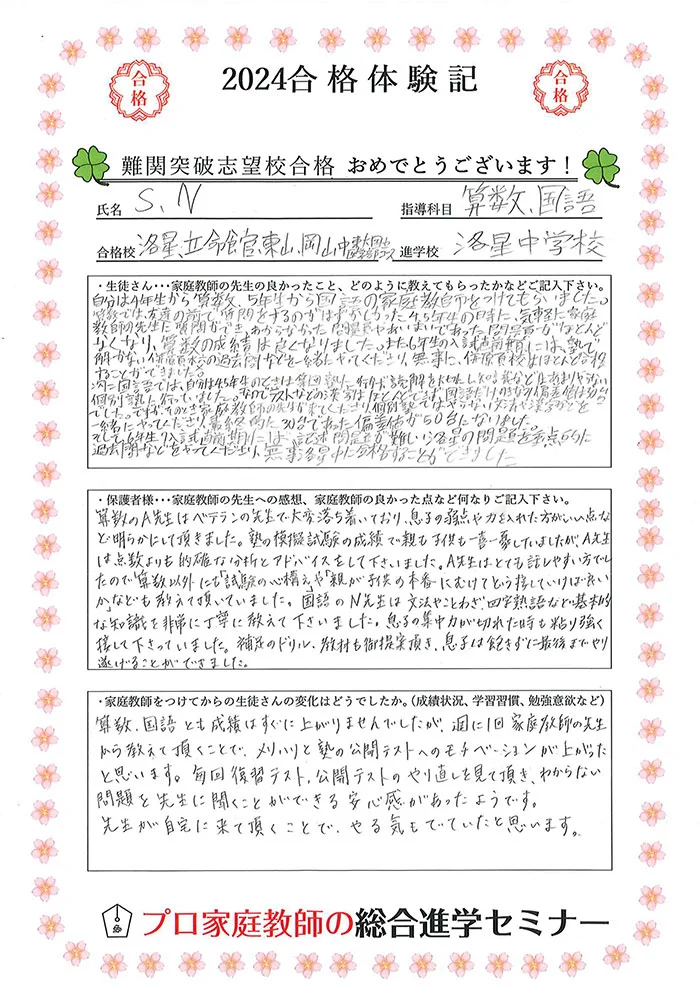 合格
2024合格体験記
合格
難関突破志望校合格 おめでとうございます！
氏名 S、N 指導科目 算数、国語
合格校 洛星、立命館、東山、岡山中 進学校 洛星中学校
・生徒さん･･･家庭教師の先生の良かったこと、どのように教えてもらったかなどご記入下さい。
自分は4年生から算数、5年生から国語の家庭教師をつけてもらいました。
算数では、友達の前で質問をするのがはずかしかった4、5年生の時に、気軽に家庭
教師の先生に質問ができ、わからなかった問題やあいまいであった問題がほとんど
なくなり、算数の成績は良くなりました。また6年生の入試直前期には、塾で
解かない併願校の過去問などを一緒にやってくださり、無事に、併願校はほとんど合格
することができました。
次に国語では、自分は4、5年生のときは
個別塾に行っていました。なのでテストなどの漢字はほとんどできず、国語だけがかなり偏差値は30台
でした。ですが、そのとき家庭教師の先生が来てくださり、個別塾ではやらない文法や漢字などを
一緒にやってくださり、最終的に30台であった偏差値が50台になりました。
そして6年生の入試直前期には、記述問題が難しい洛星の問題を重点的に
過去問などをやってくださり、無事洛星中に合格することができました
・保護者様･･･家庭教師の先生への感想、家庭教師の良かった点など何なりご記入下さい。
算数のA先生はベテランの先生で大変落ち着いており、息子の弱点や力を入れた方がいい点な
ど明らかにして頂きました。塾の模擬試験の成績で親も子供も一喜一憂していましたが、A先生
は点数よりも的確な分析とアドバイスをして下さいました。A先生はとても話しやすい方でし
たので算数以外にも"試験の心構え"や"親が子供の本番にむけてどう接していけば良い
か"なども教えて頂いていました。国語のN先生は文法やことわざ、四字熟語など基本的
な知識を非常に丁寧に教えて下さいました。息子の集中力が切れた時も粘り強く
接して下さっていました。補足のドリル、教材も御提案頂き、息子は飽きずに最後までやり
遂げることができました。
・家庭教師をつけてからの生徒さんの変化はどうでしたか。（成績状況、学習習慣、勉強意欲など）
算数、国語とも成績はすぐに上がりませんでしたが、週に1回家庭教師の先生
から教えて頂くことで、メリハリと塾の公開テストへのモチベーションが上がった
と思います。毎回復習テスト、公開テストのやり直しを見て頂き、わからない
問題を先生に聞くことができる安心感があったようです。
先生が自宅に来て頂くことで、やる気もでていたと思います。
プロ家庭教師の総合進学セミナー